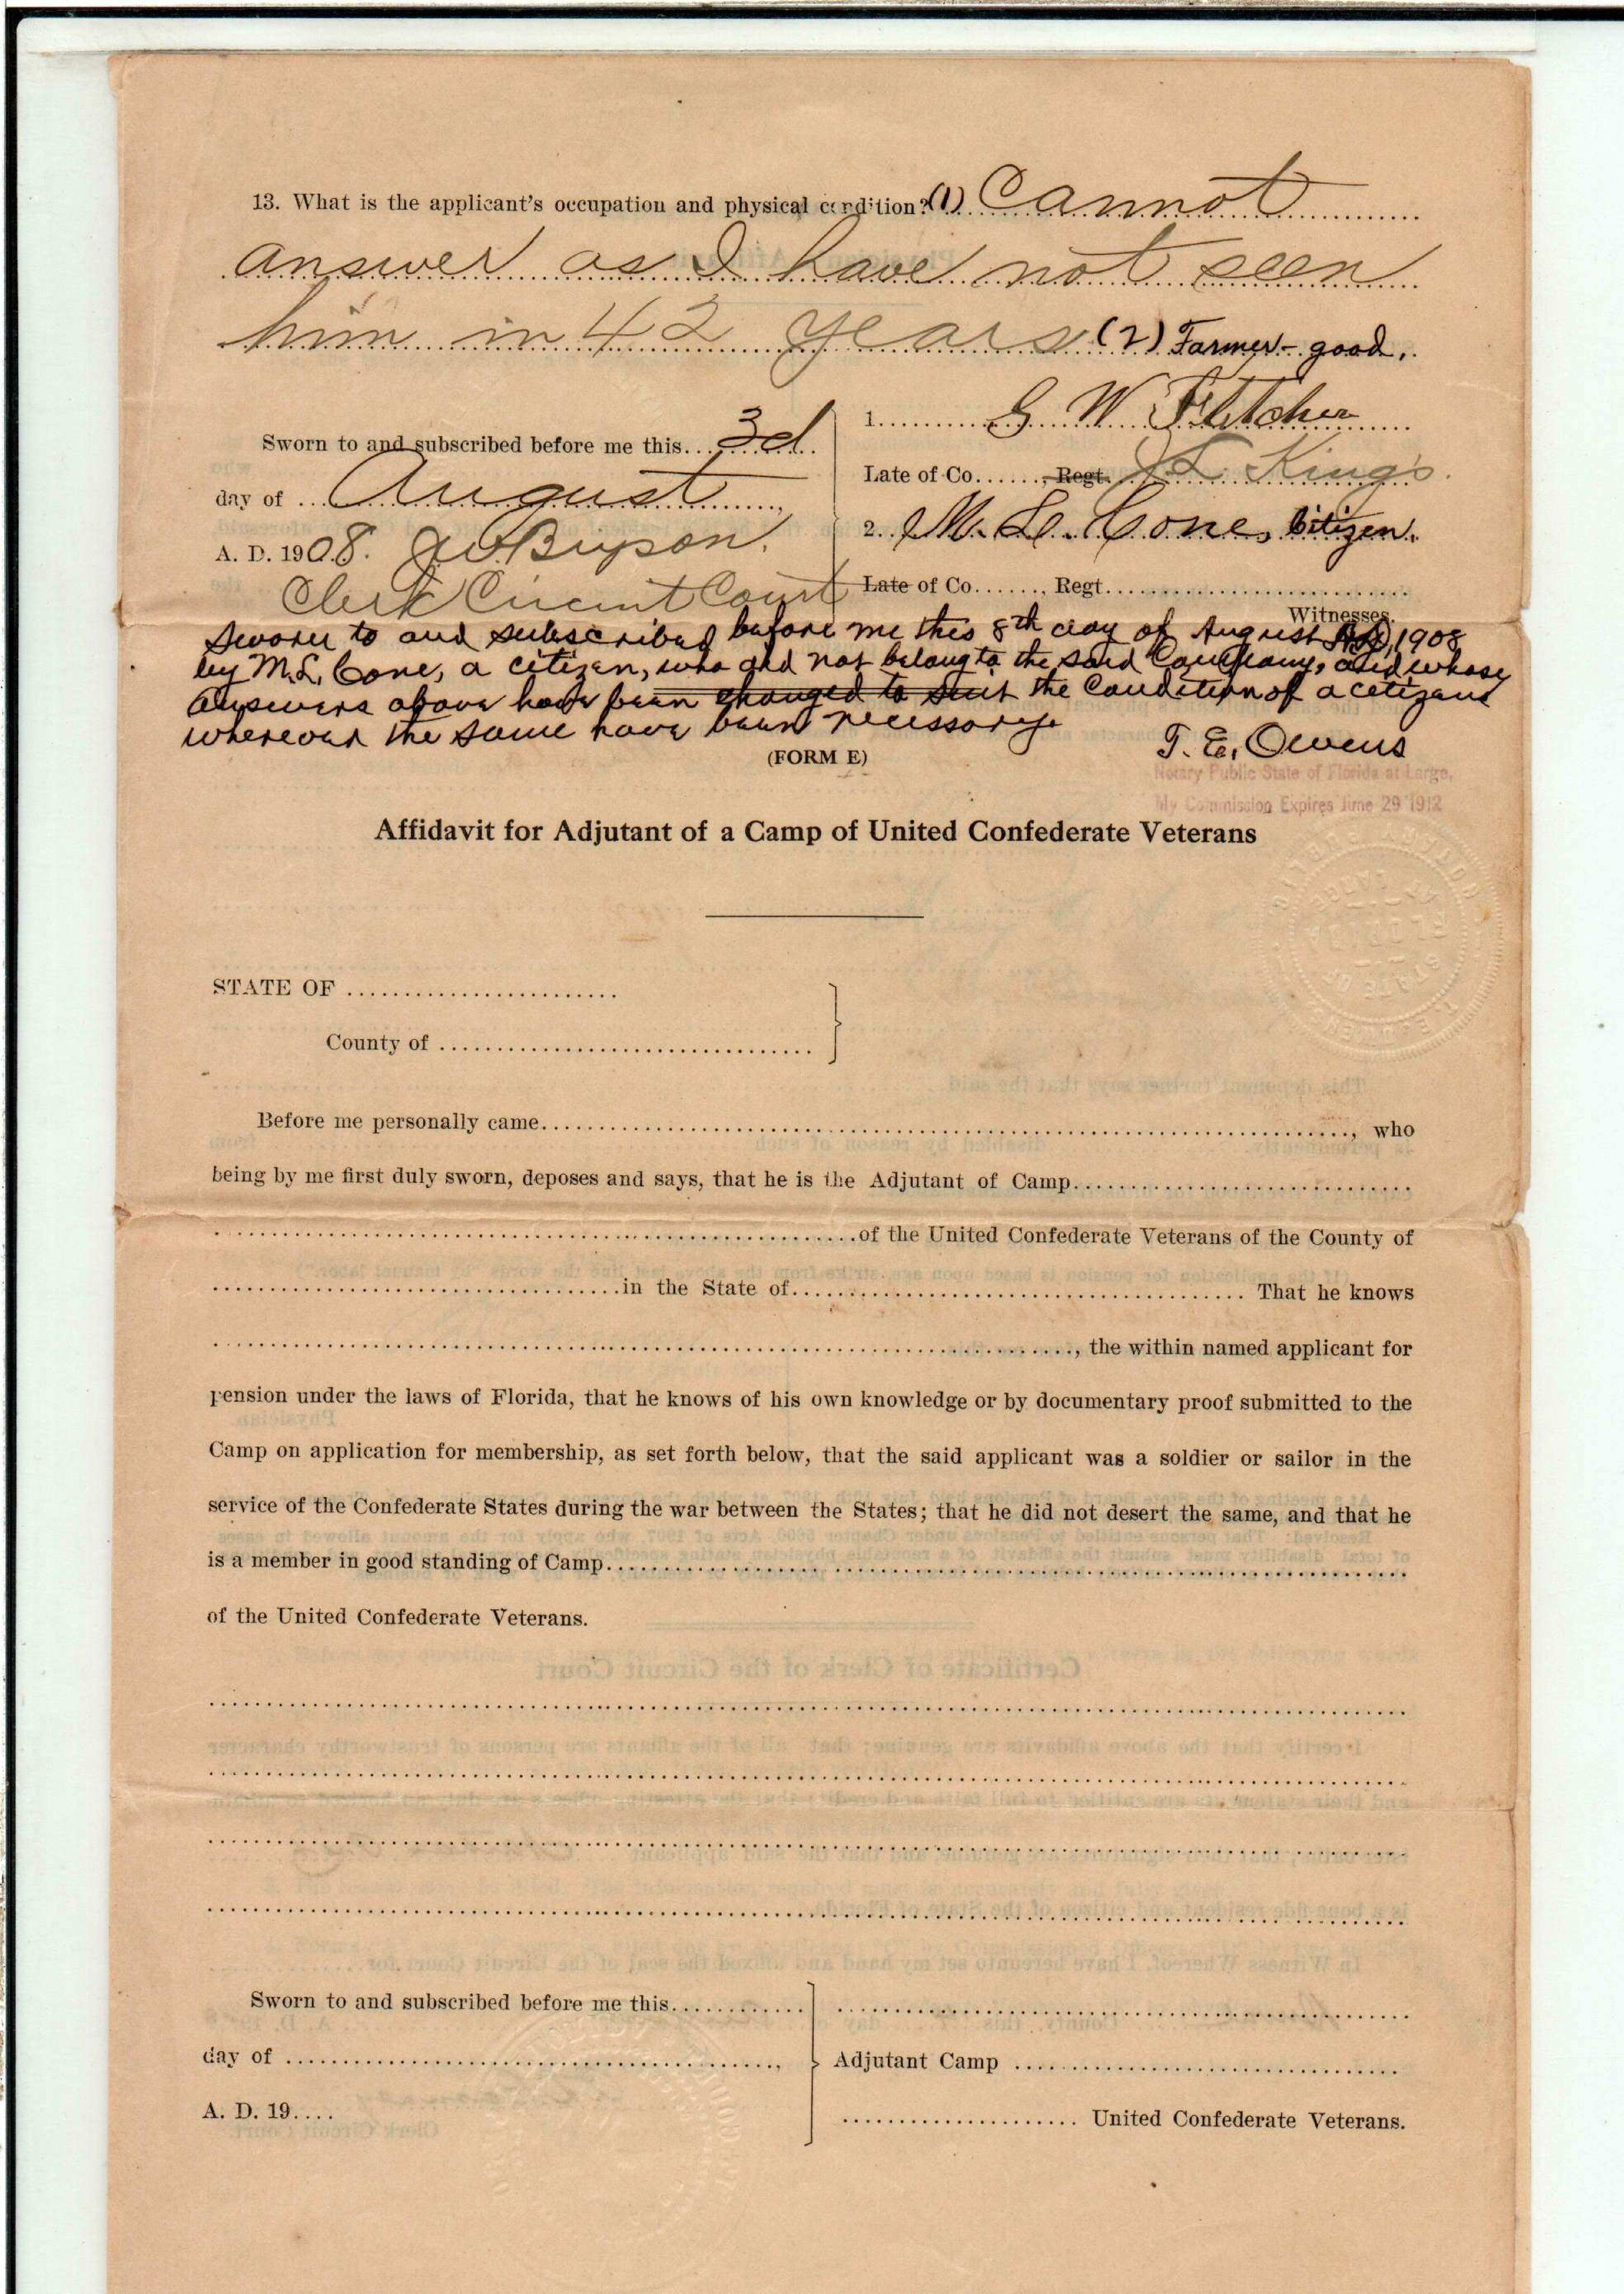 13. What is the applicant's occupation and physical condition? (1) Cannot
answer as I have not seen
him in 42 years (2) Farmer - good.
Sworn to and subscribed before me this 3d
day of August,
A. D. 1908. Bryson.
Clerk Circuit Court
1. G. W. Fletcher
Late of Co......, Regt. King's
2. M. L. Cone, Citizen.
Late of Co......, Regt.
Witnesses.
Sworn to and subscribed before me this 8th day of August A.D. 1908
by M. L. Cone, a citizen, who did not belong to the said Company, and whose
answers above have been changed to suit the condition of a citizen
wherever the same have been necessary.
T. E. Owens
Notary Public State of Florida at Large,
My Commission Expires June 29 1912
(FORM E)
Affidavit for Adjutant of a Camp of United Confederate Veterans
NOTARY PUBLIC
AT LARGE
FLORIDA
STATE OF
T. E. OWENS
STATE OF
County of
Before me personally came, who
being by me first duly sworn, deposes and says, that he is the Adjutant of Camp
of the United Confederate Veterans of the County of
in the State of That he knows
, the within named applicant for
pension under the laws of Florida, that he knows of his own knowledge or by documentary proof submitted to the
Camp on application for membership, as set forth below, that the said applicant was a soldier or sailor in the
service of the Confederate States during the war between the States; that he did not desert the same, and that he
is a member in good standing of Camp
of the United Confederate Veterans.
Sworn to and subscribed before me this
day of ,
A. D. 19....
Adjutant Camp
United Confederate Veterans.